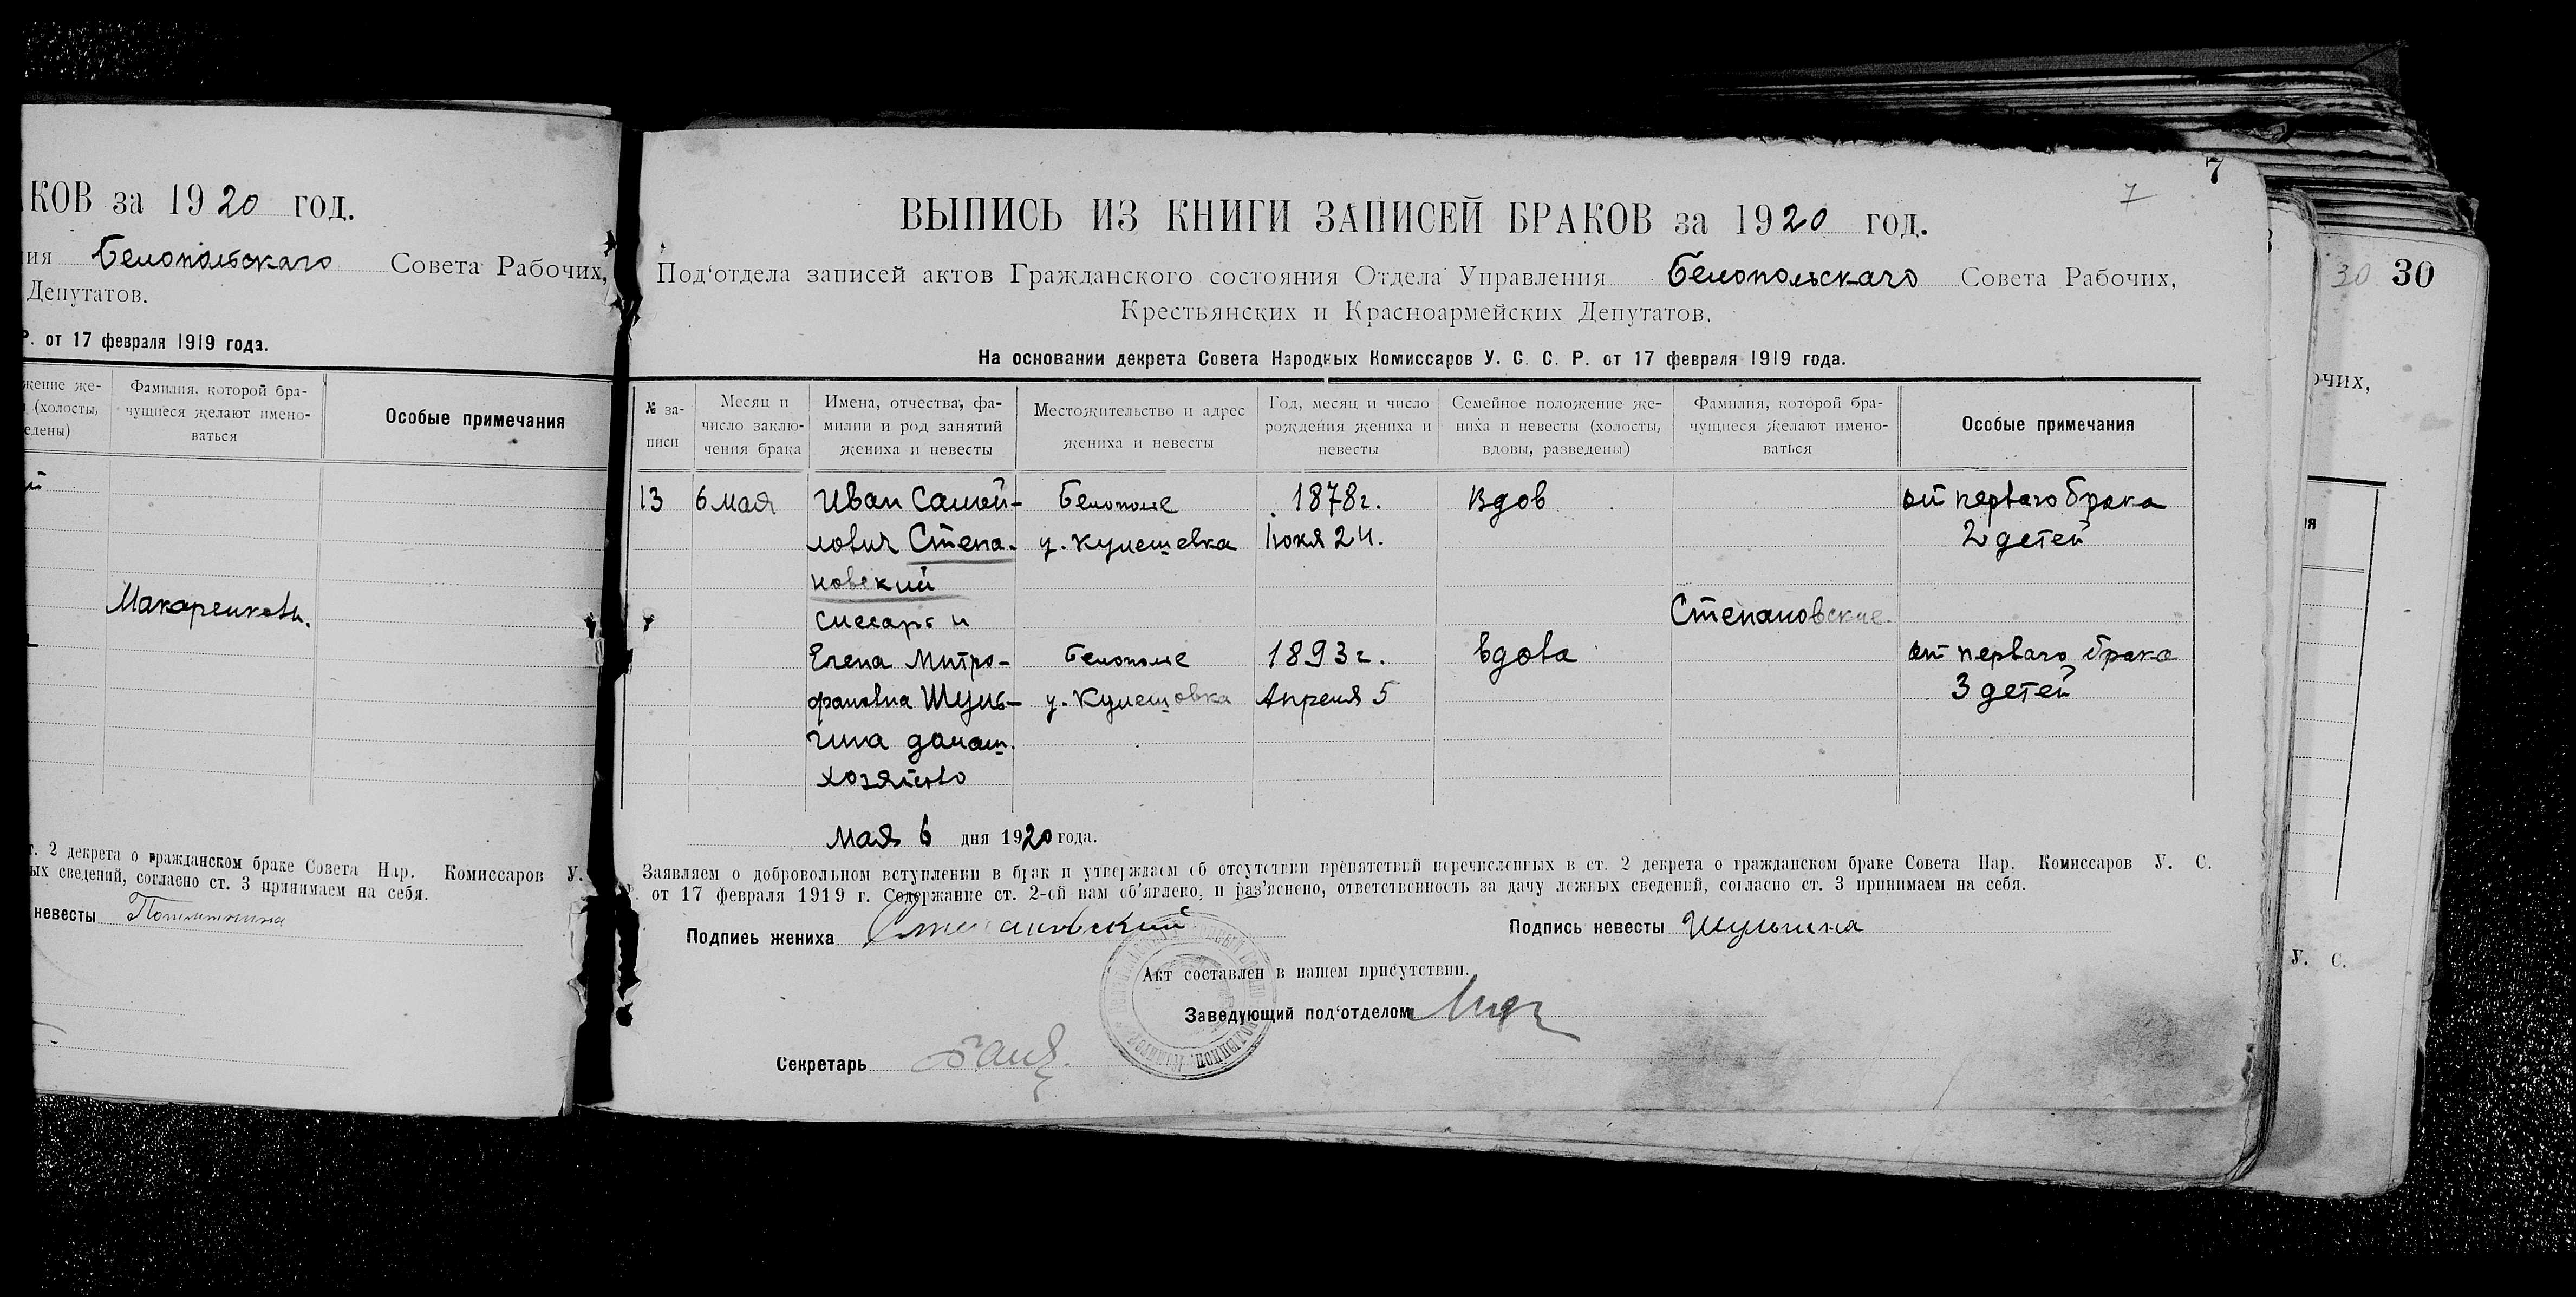 КОВ за 1920 год.
ия Белопольскаго Совета Рабочих,
Депутатов.
Р. от 17 февраля 1919 года.
жение же-
(холосты,
едены)
Фамилия, которой бра-
чущиеся желают имено-
ваться
Особые примечания
Макаренковы.
т. 2 декрета о гражданском браке Совета Нар. Комиссаров У.
ых сведений, согласно ст. 3 принимаем на себя.
невесты
7
7
ВЫПИСЬ ИЗ КНИГИ ЗАПИСЕЙ БРАКОВ за 1920 год.
Под'отдела записей актов Гражданского состояния Отдела Управления Белопольскаго Совета Рабочих,
Крестьянских и Красноармейских Депутатов.
На основании декрета Совета Народных Комиссаров У. С. С. Р. от 17 февраля 1919 года.
№ за-
писи
Месяц и
число заклю-
чения брака
Имена, отчества, фа-
милии и род занятий
жениха и невесты
Местожительство и адрес
жениха и невесты
Год, месяц и число
рождения жениха и
невесты
Семейное положение же-
ниха и невесты (холосты,
вдовы, разведены)
Фамилия, которой бра-
чущиеся желают имено-
ваться
Особые примечания
13 6 мая Иван Самой- Белополе 1878г. Вдов от перваго брака
лович Степа- у. Кулешевка Июня 24. 2 детей
новский
слесарь и Степановские.
Елена Митро- Белополе 1893г. вдова от перваго брака
фановна Шуль- у. Кулешовка Апреля 5 3 детей
гина домаш.
хозяйство
мая 6 дня 1920 года.
Заявляем о добровольном вступлении в брак и утверждаем об отсутствии препятствий перечисленных в ст. 2 декрета о гражданском браке Совета Нар. Комиссаров У. С.
от 17 февраля 1919 г. Содержание ст. 2-ой нам об'явлено, и раз'яснено, ответственность за дачу ложных сведений, согласно ст. 3 принимаем на себя.
Подпись жениха Степановский Подпись невесты Шульгина
Акт составлен в нашем присутствии.
Заведующий под'отделом
Секретарь
30 30
очих,
У. С.